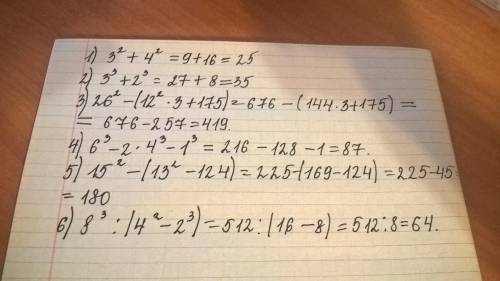 1) 3² + 4² = 9 + 16 = 25
2) 3³ + 2³ = 27 + 8 = 35
3) 26² - (12² · 3 + 175) = 676 - (144 · 3 + 175) =
= 676 - 257 = 419.
4) 6³ - 2 · 4³ - 1³ = 216 - 128 - 1 = 87.
5) 15² - (13² - 124) = 225 - (169 - 124) = 225 - 45
= 180
6) 8³ : (4² - 2³) = 512 : (16 - 8) = 512 : 8 = 64.